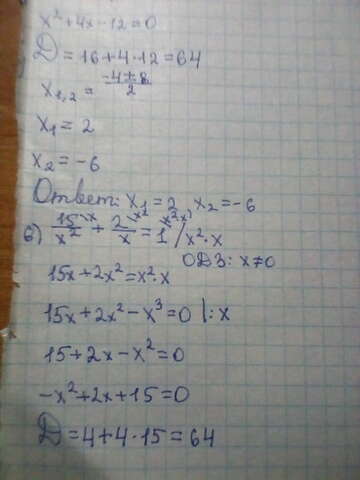 x² + 4x - 12 = 0
D = 16 + 4 · 12 = 64
x₁,₂ = (-4 ± 8)/2
x₁ = 2
x₂ = -6
Ответ: x₁ = 2 x₂ = -6
б) 15/x² \x + 2/x \x² = 1 \x²·x / x² · x
ОДЗ: x ≠ 0
15x + 2x² = x² · x
15x + 2x² - x³ = 0 |: x
15 + 2x - x² = 0
-x² + 2x + 15 = 0
D = 4 + 4 · 15 = 64